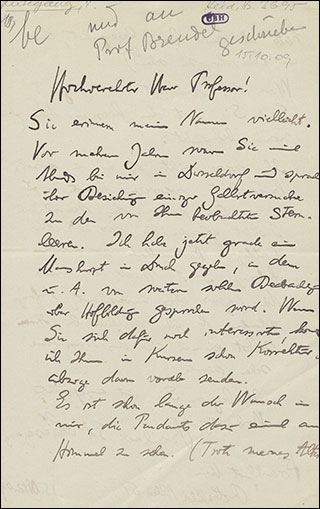 und an
Prof Brendel geschrieben
15.10.09
UBH
Hochverehrter Herr Professor!
Sie erinnern meinen Namen vielleicht.
Vor mehreren Jahren waren Sie mal
Abends bei mir in Düsseldorf und sprachen
über Beziehung einiger Selbstversuche
zu den von Ihnen beobachteten Stern-
leeren. Ich habe jetzt gerade ein
Manuskript in Druck gegeben, in dem
u. A. von weitern solchen
über Hofbildung gesprochen wird. Wenn
Sie sich dafür noch interessiren
ich Ihnen in Kurzem schon Korrektur-
abzüge davon senden.
Es ist schon lange der Wunsch in
mir, die Pendants dazu einmal am
Himmel zu sehen. (Trotz meines